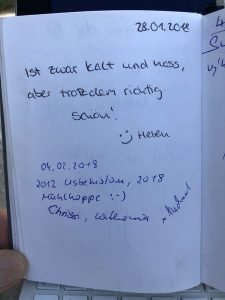 28.01.2018
Ist zwar kalt und nass,
aber trotzdem richtig
schön!
:-) Helen
04.02.2018
2012 Usbekistan, 2018
Mühlkoppe :-)
Chrissi,